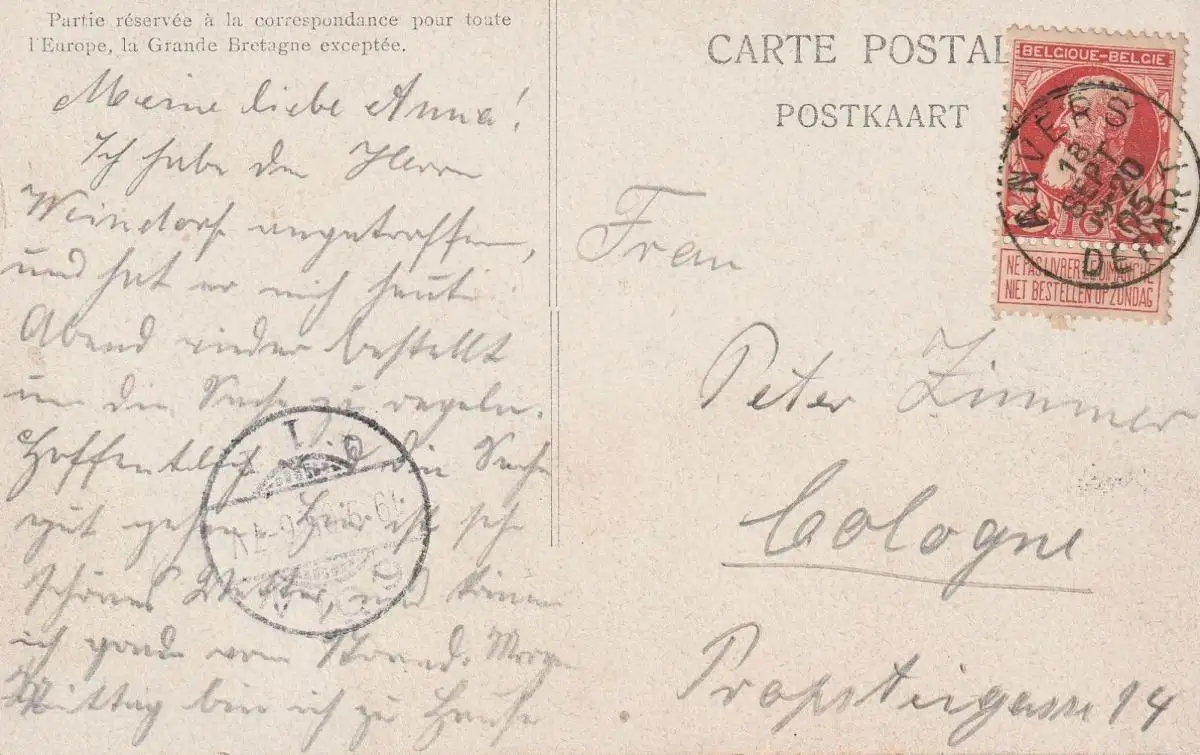 Partie réservée à la correspondance pour toute
l'Europe, la Grande Bretagne exceptée.
CARTE POSTAL
POSTKAART
BELGIQUE-BELGIE
ANVERS
18
SEPT
20
05
DEPART
10
NE PAS LIVRER LE DIMANCHE
NIET BESTELLEN OP ZONDAG
Meine liebe Anna!
Ich habe den Herrn
Weindorf angetroffen,
und hat er mich heute
Abend wieder bestellt
um die Sache zu regeln.
Hoffentlich wird die Sache
gut gehen. Hier ist sehr
schönes Wetter, und komme
ich grade vom Strand. Morgen
Mittag bin ich zu Hause
Frau
Peter Zimmer
Cologne
Propsteigasse 14